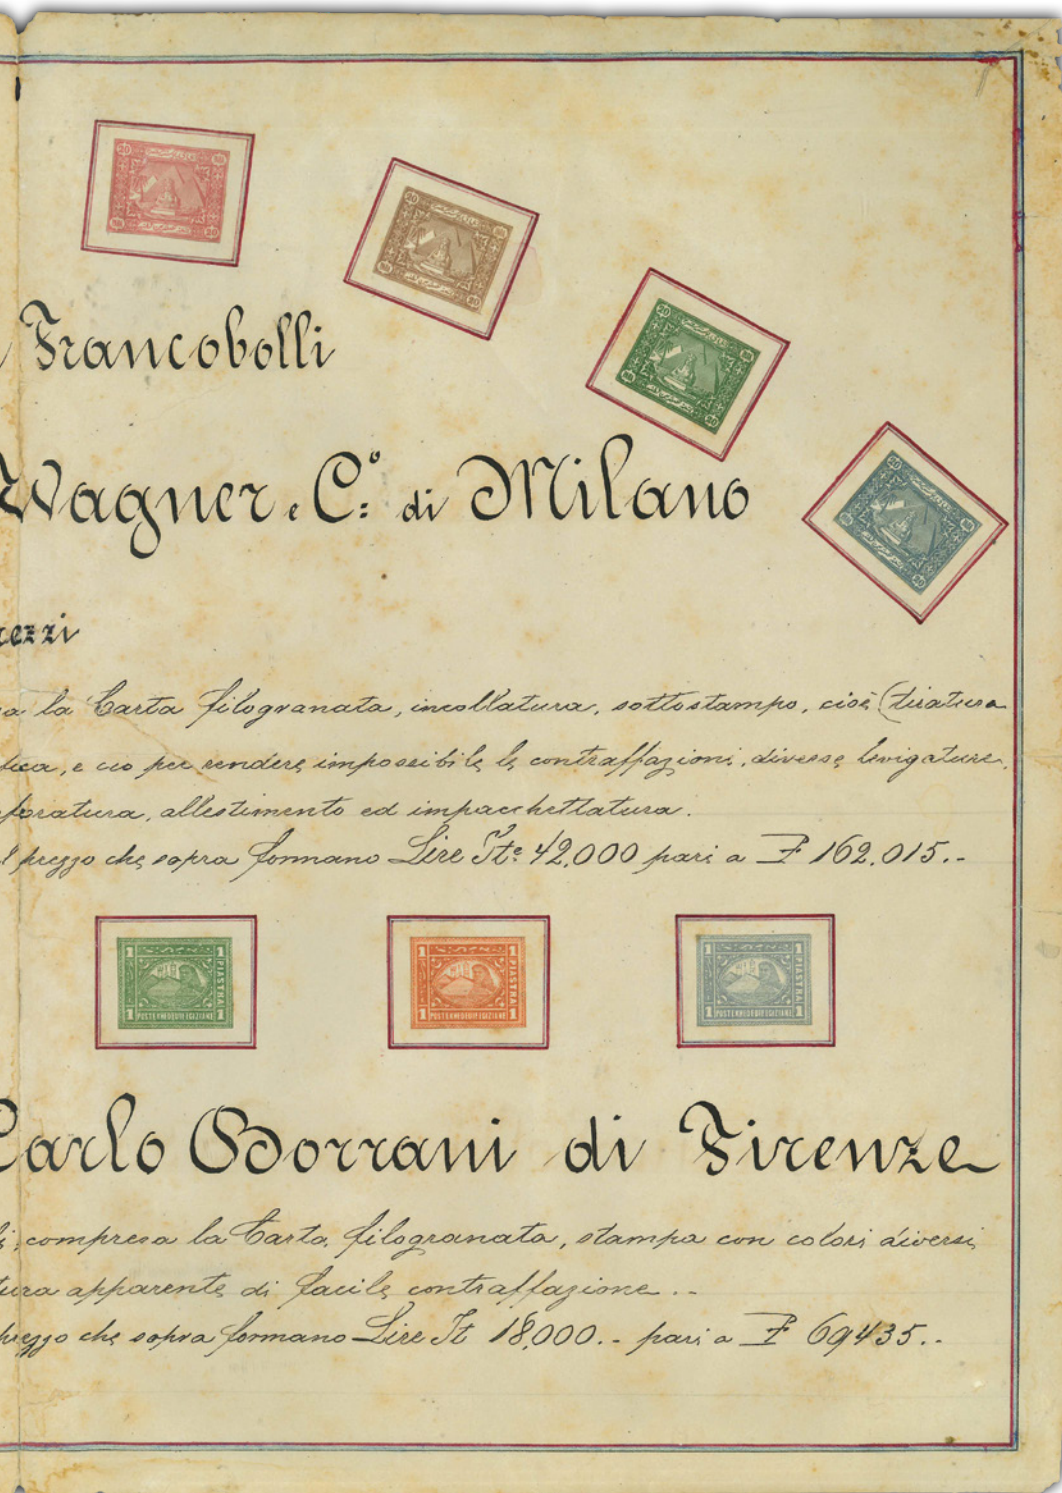 Francobolli
Wagner e C.º di Milano
rezzi
a la Carta filogranata, incollatura, sottostampo, cioè (tiratura
tica, e ciò per rendere impossibile le contraffazioni, diverse levigature,
foratura, allestimento ed impacchettatura.
l prezzo che sopra formano Lire Ite 42,000 pari a P 162,015.-
1 1 PIASTRA 1 1 POSTE KHEDEUIE EGIZIANE
1 1 PIASTRA 1 1 POSTE KHEDEUIE EGIZIANE
1 1 PIASTRA 1 1 POSTE KHEDEUIE EGIZIANE
Carlo Borrani di Firenze
i, compresa la Carta, filogranata, stampa con colori diversi,
tura apparente di facile contraffazione..-
prezzo che sopra formano Lire It 18,000.- pari a P 69435..-